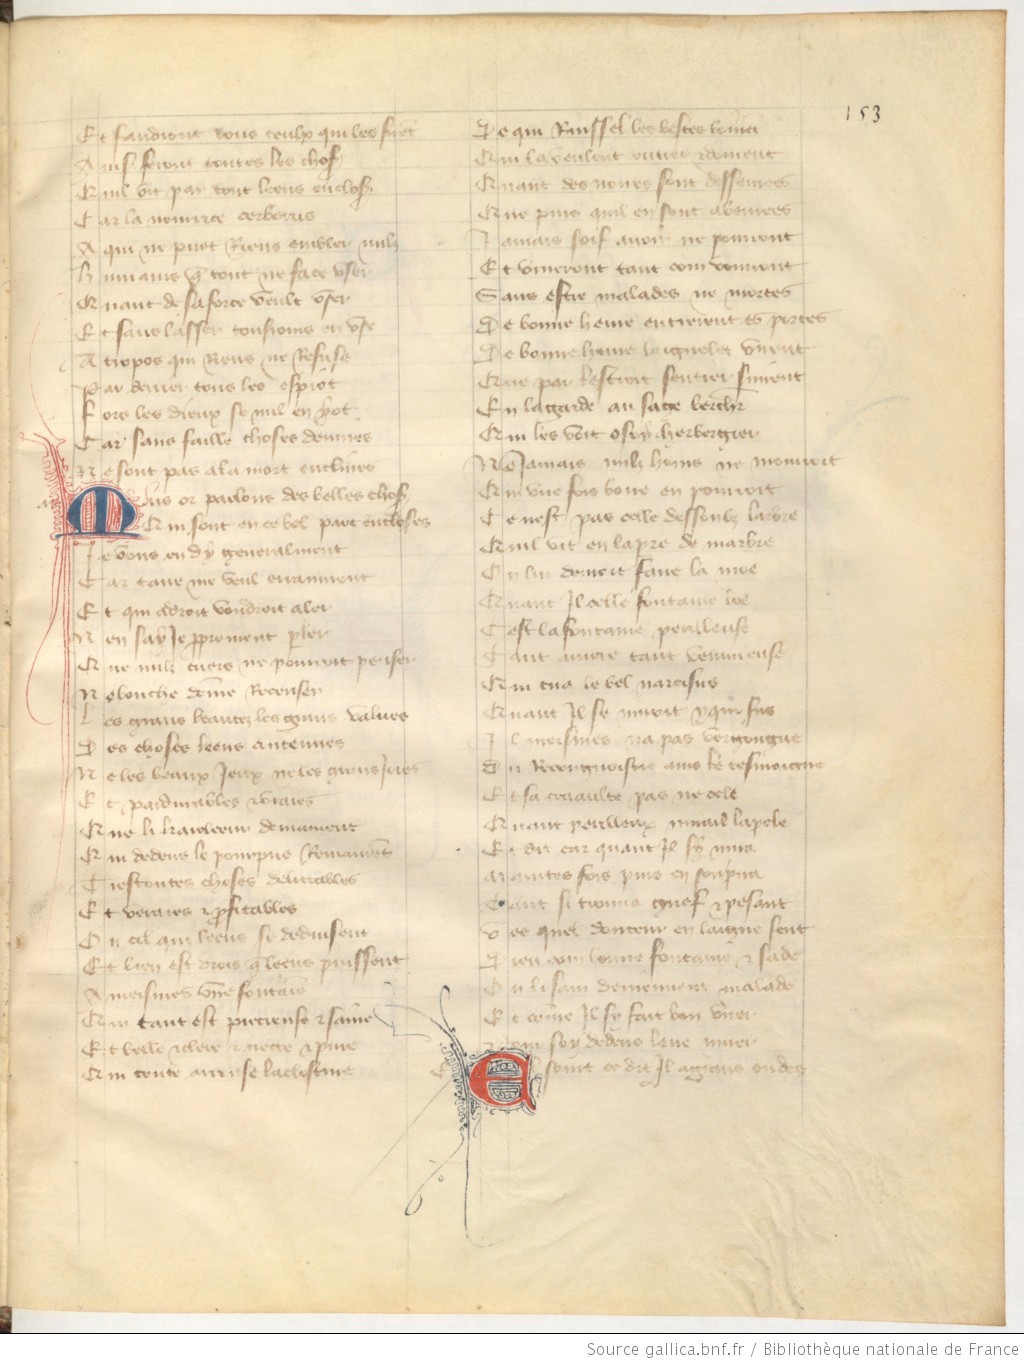 153
Et faudront vous ceulx qui les firent
Ainsi seront toutes les chos
Quil vit par tout leens enclos
Car la nourrice cerberus
A qui ne puet Riens embler nulz
Humains q̃ tout ne face user
Quant de sa force veult user
Et sans lasser tousiours en use
Atropos qui Riens ne Refuse
Par derrier tous les espiot
Fors les dieux se nul en y ot
Car sans faille choses devines
Ne sont pas a la mort enclines
Mais or parlons des belles chos
Qui sont en ce bel parc encloses
Je vous en dy generalment
Car taire me veul erranment
Et qui adroit voudroit aler
Nen say Je proprement parler
Que nulz cuers ne pourroit penser
Ne bouche dome Recenser
Les grans beautez les grans values
Des choses leens contenues
Ne les beaux Jeux ne les grans Joies
Et pardurables et vraies
Que li karoleeur demainent
Qui dedens le pourpris Remainent
Trestoutes choses delitables
Et vraies et profitables
On cil qui leens se deduisent
Et bien est drois q̃ leens puissent
A meismes une fontaine
Qui tant est precieuse et saine
Et belle et clere et nette et pure
Qui toute arrouse la closture
De qui Ruissel les bestes boivent
Qui la veulent entrer et doivent
Quant des noires sont dessevrees
Que puis quil en sont abevrees
Jamais soif avoir ne pourront
Et vivront tant com vourront
Sans estre malades ne mortes
De bonne heure entrerent es portes
De bonne heure laignelet virent
Que par lestroit sentier suirent
En la garde au sage berchier
Qui les voit o soy herbergier
Ne Jamais nulz homs ne mourroit
Qui une fois boire en pourroit
Ce nest pas celle dessoubz larbre
Quil vit en la pre de marbre
On lui devroit faire la moe
Quant Il celle fontaine loe
Cest la fontaine perilleuse
Tant amere tant venimeuse
Qui tua le bel narcisus
Quant Il se miroit yqui sus
Il meismes na pas vergongne
Du Recongnoistre ains le tesmoigne
Et sa cruaulte pas ne cele
Quant perilleux miroir lapele
Et dit car quant Il sy mira
Maintes fois puis en souspira
Tant si trouva grief et pesant
Vees quel douceur en laigue sent
Dieu com bonne fontaine et sade
Ou li sain deviennent malade
Et come Il sy fait bon virer
Pour soy dedens leaue mirer
Elle sourt ce dit Il a grans ondes
Source gallica.bnf.fr / Bibliothèque nationale de France